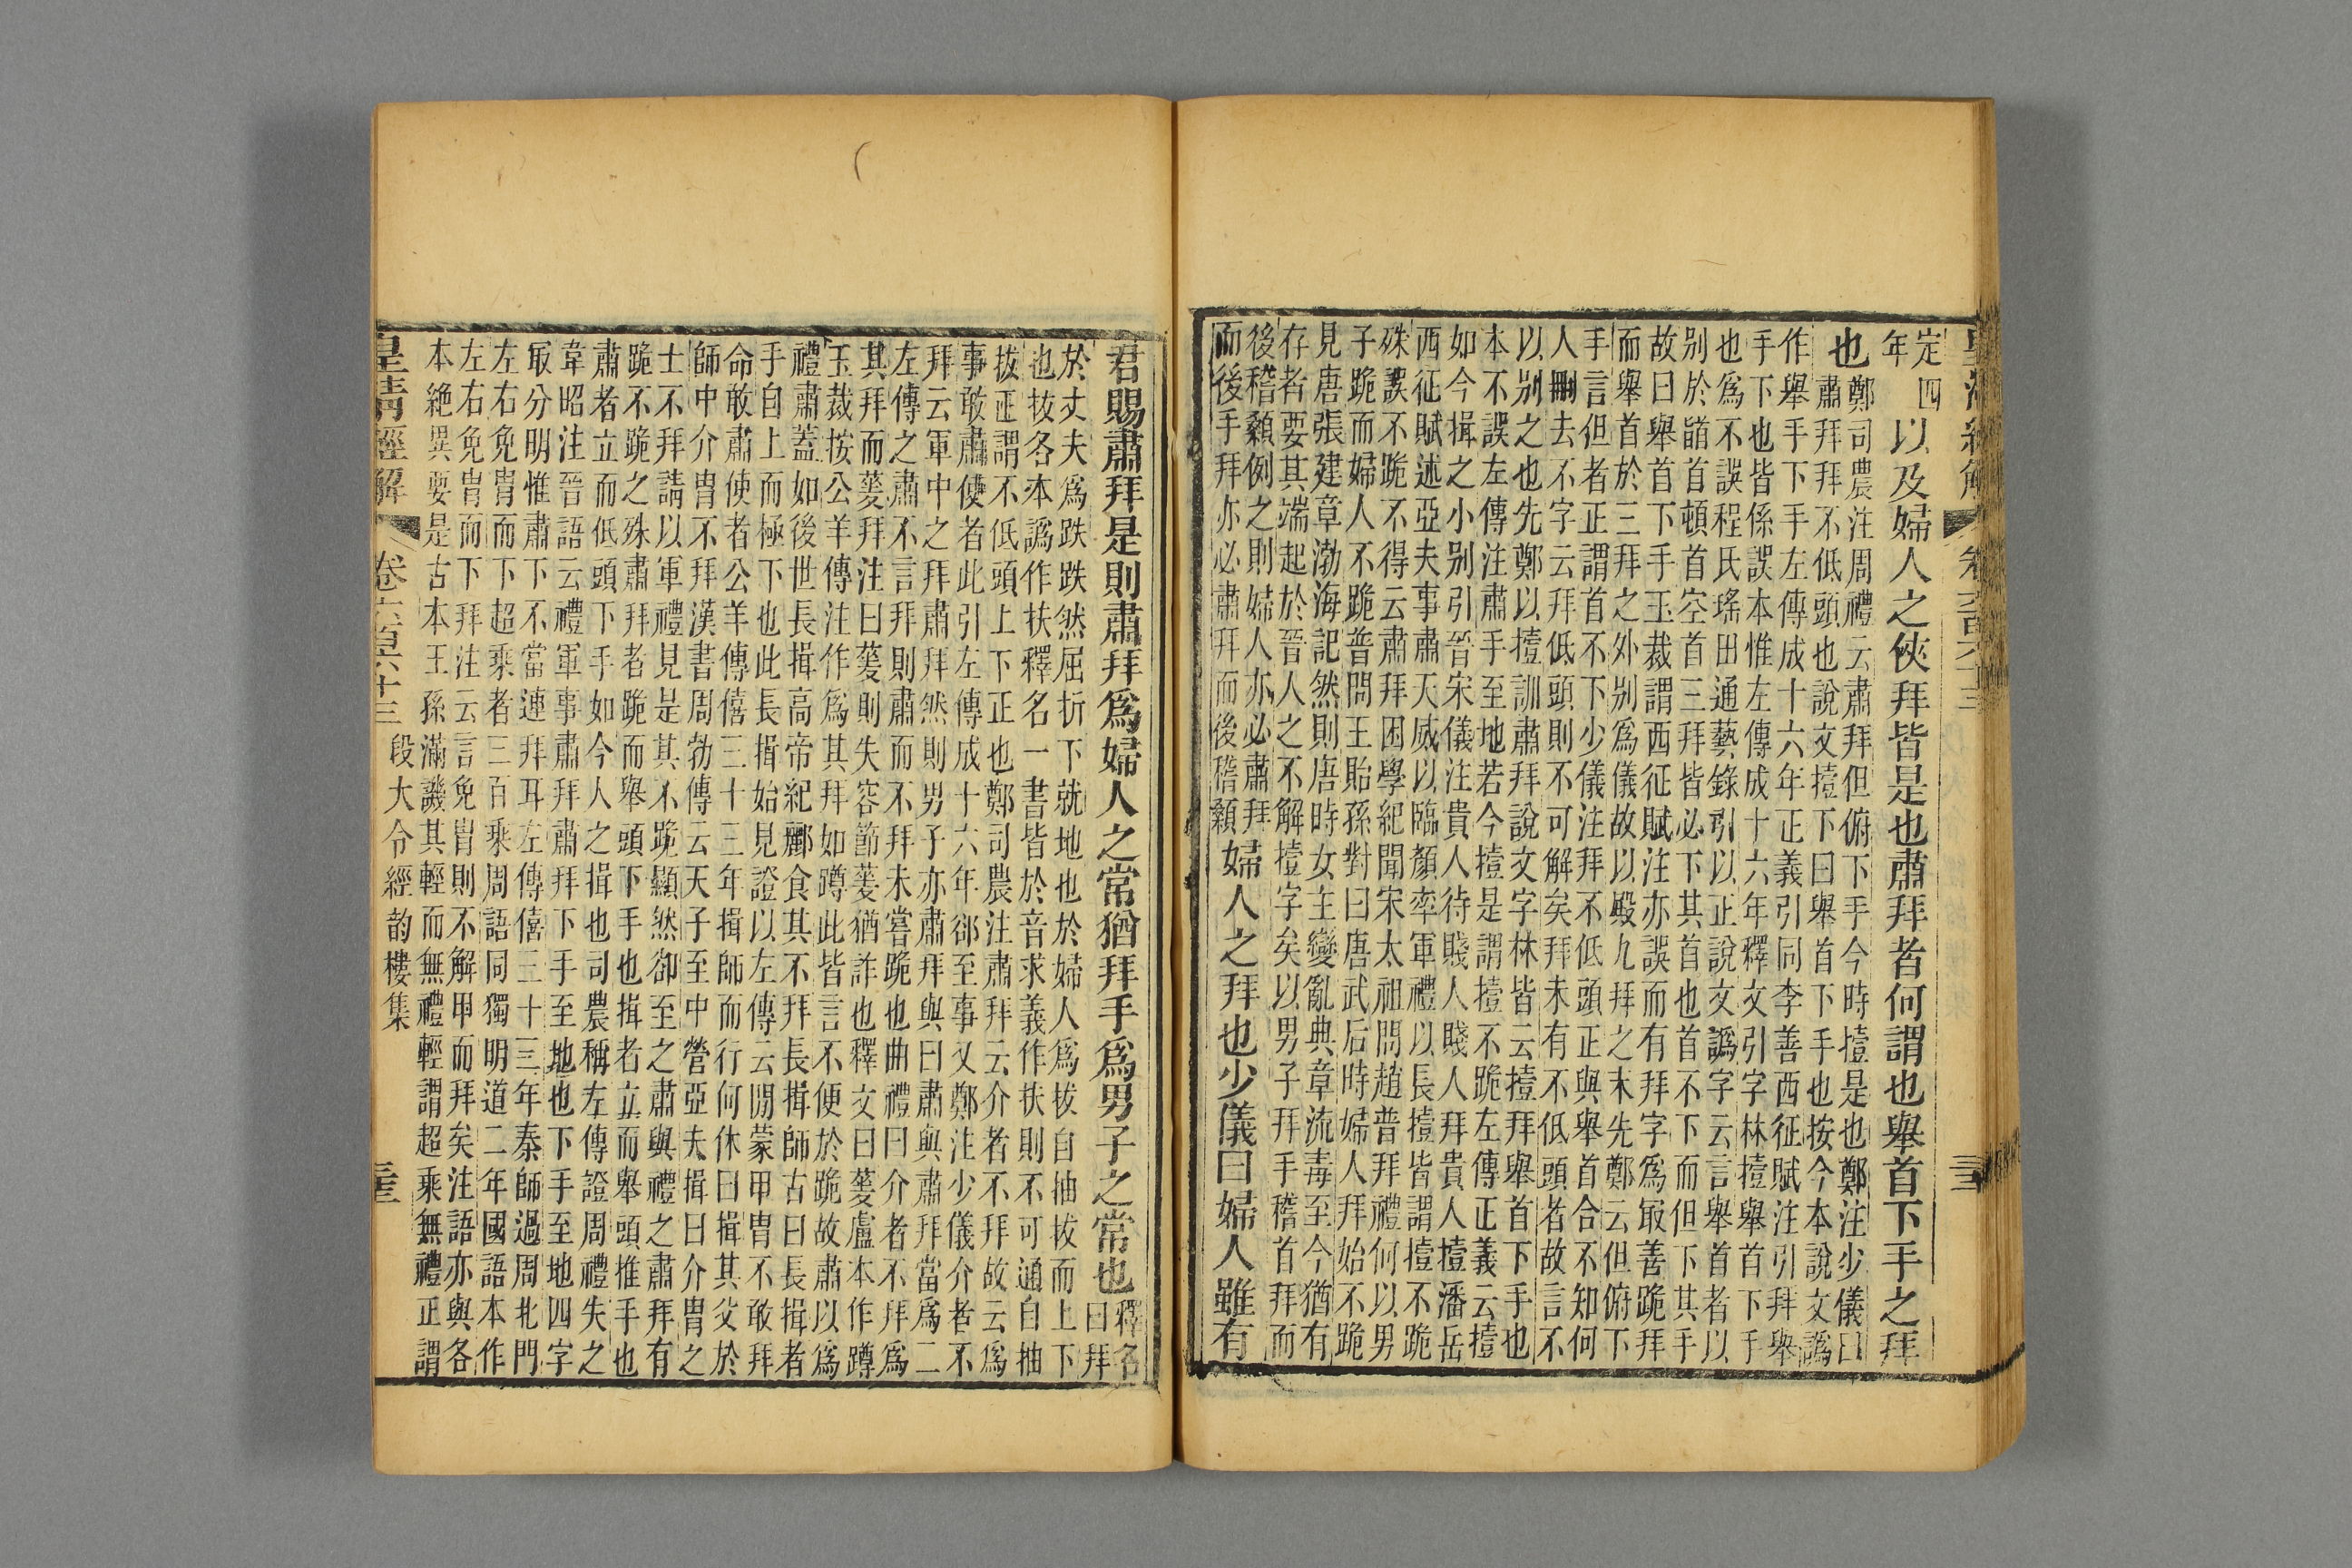 定四
年
以及婦人之俠拜皆是也肅拜者何謂也舉首下手之拜
也
鄭司農注周禮云肅拜但俯下手今時擡是也鄭注少儀曰
肅拜拜不低頭也說文擡下曰舉首下手也按今本說文譌
作舉手下手左傳成十六年正義引同李善西征賦注引拜舉
手下也皆係誤本惟左傳成十六年釋文引字林擡舉首下手
也爲不誤程氏瑤田通藝錄引以正說文譌字云言舉首者以
别於䭫首頓首空首三拜皆必下其首也首不下而但下其手
故曰舉首下手玉裁謂西征賦注亦誤而有拜字爲㝡善跪拜
而舉首於三拜之外别爲儀故以殿九拜之末先鄭云但俯下
手言但者正謂首不下少儀注拜不低頭正與舉首合不知何
人刪去不字云拜低頭則不可解矣拜未有不低頭者故言不
以别之也先鄭以擡訓肅拜說文字林皆云擡拜舉首下手也
本不誤左傳注肅手至地若今擡是謂擡不跪左傳正義云擡
如今揖之小别引晉宋儀注貴人待賤人賤人拜貴人擡潘岳
西征賦述亞夫事肅天威以臨顏率軍禮以長擡皆謂擡不跪
殊誤不跪不得云肅拜困學紀聞宋太祖問趙普拜禮何以男
子跪而婦人不跪普問王貽孫對曰唐武后時婦人拜始不跪
見唐張建章渤海記然則唐時女主變亂典章流毒至今猶有
存者要其端起於晉人之不解擡字矣以男子拜手稽首拜而
後稽顙例之則婦人亦必肅拜
而後手拜亦必肅拜而後稽顙
婦人之拜也少儀曰婦人雖有
君賜肅拜是則肅拜爲婦人之常猶拜手爲男子之常也
釋名
曰拜
於丈夫爲跌跌然屈折下就地也於婦人爲拔自抽拔而上下
也按各本譌作扶釋名一書皆於音求義作扶則不可通自抽
拔正謂不低頭上下正也鄭司農注肅拜云介者不拜故云爲
事敢肅使者此引左傳成十六年郤至事又鄭注少儀介者不
拜云軍中之拜肅拜然則男子亦肅拜與曰肅與肅拜當爲二
左傳之肅不言拜則肅而不拜未嘗跪也曲禮曰介者不拜爲
其拜而蓌拜注曰蓌則失容節蓌猶詐也釋文曰蓌盧本作蹲
玉裁按公羊傳注作爲其拜如蹲此皆言不便於跪故肅以爲
禮肅蓋如後世長揖高帝紀酈食其不拜長揖師古曰長揖者
手自上而極下也此長揖始見證以左傳云閒蒙甲冑不敢拜
命敢肅使者公羊傳僖三十三年揖師而行何休曰揖其父於
師中介冑不拜漢書周勃傳云天子至中營亞夫揖曰介冑之
士不拜請以軍禮見是其不跪顯然卻至之肅與禮之肅拜有
跪不跪之殊肅拜者跪而舉頭下手也揖者立而舉頭推手也
肅者立而低頭下手如今人之揖也司農稱左傳證周禮失之
韋昭注晉語云禮軍事肅拜肅拜下手至地也下手至地四字
㝡分明惟肅下不當連拜耳左傳僖三十三年秦師過周北門
左右免冑而下超乘者三百乘周語同獨明道二年國語本作
左右免冑而下拜注云言免冑則不解甲而拜矣注語亦與各
本絶異要是古本王孫滿譏其輕而無禮輕謂超乘無禮正謂
皇清經解
卷六百六十三
段大令經韵樓集